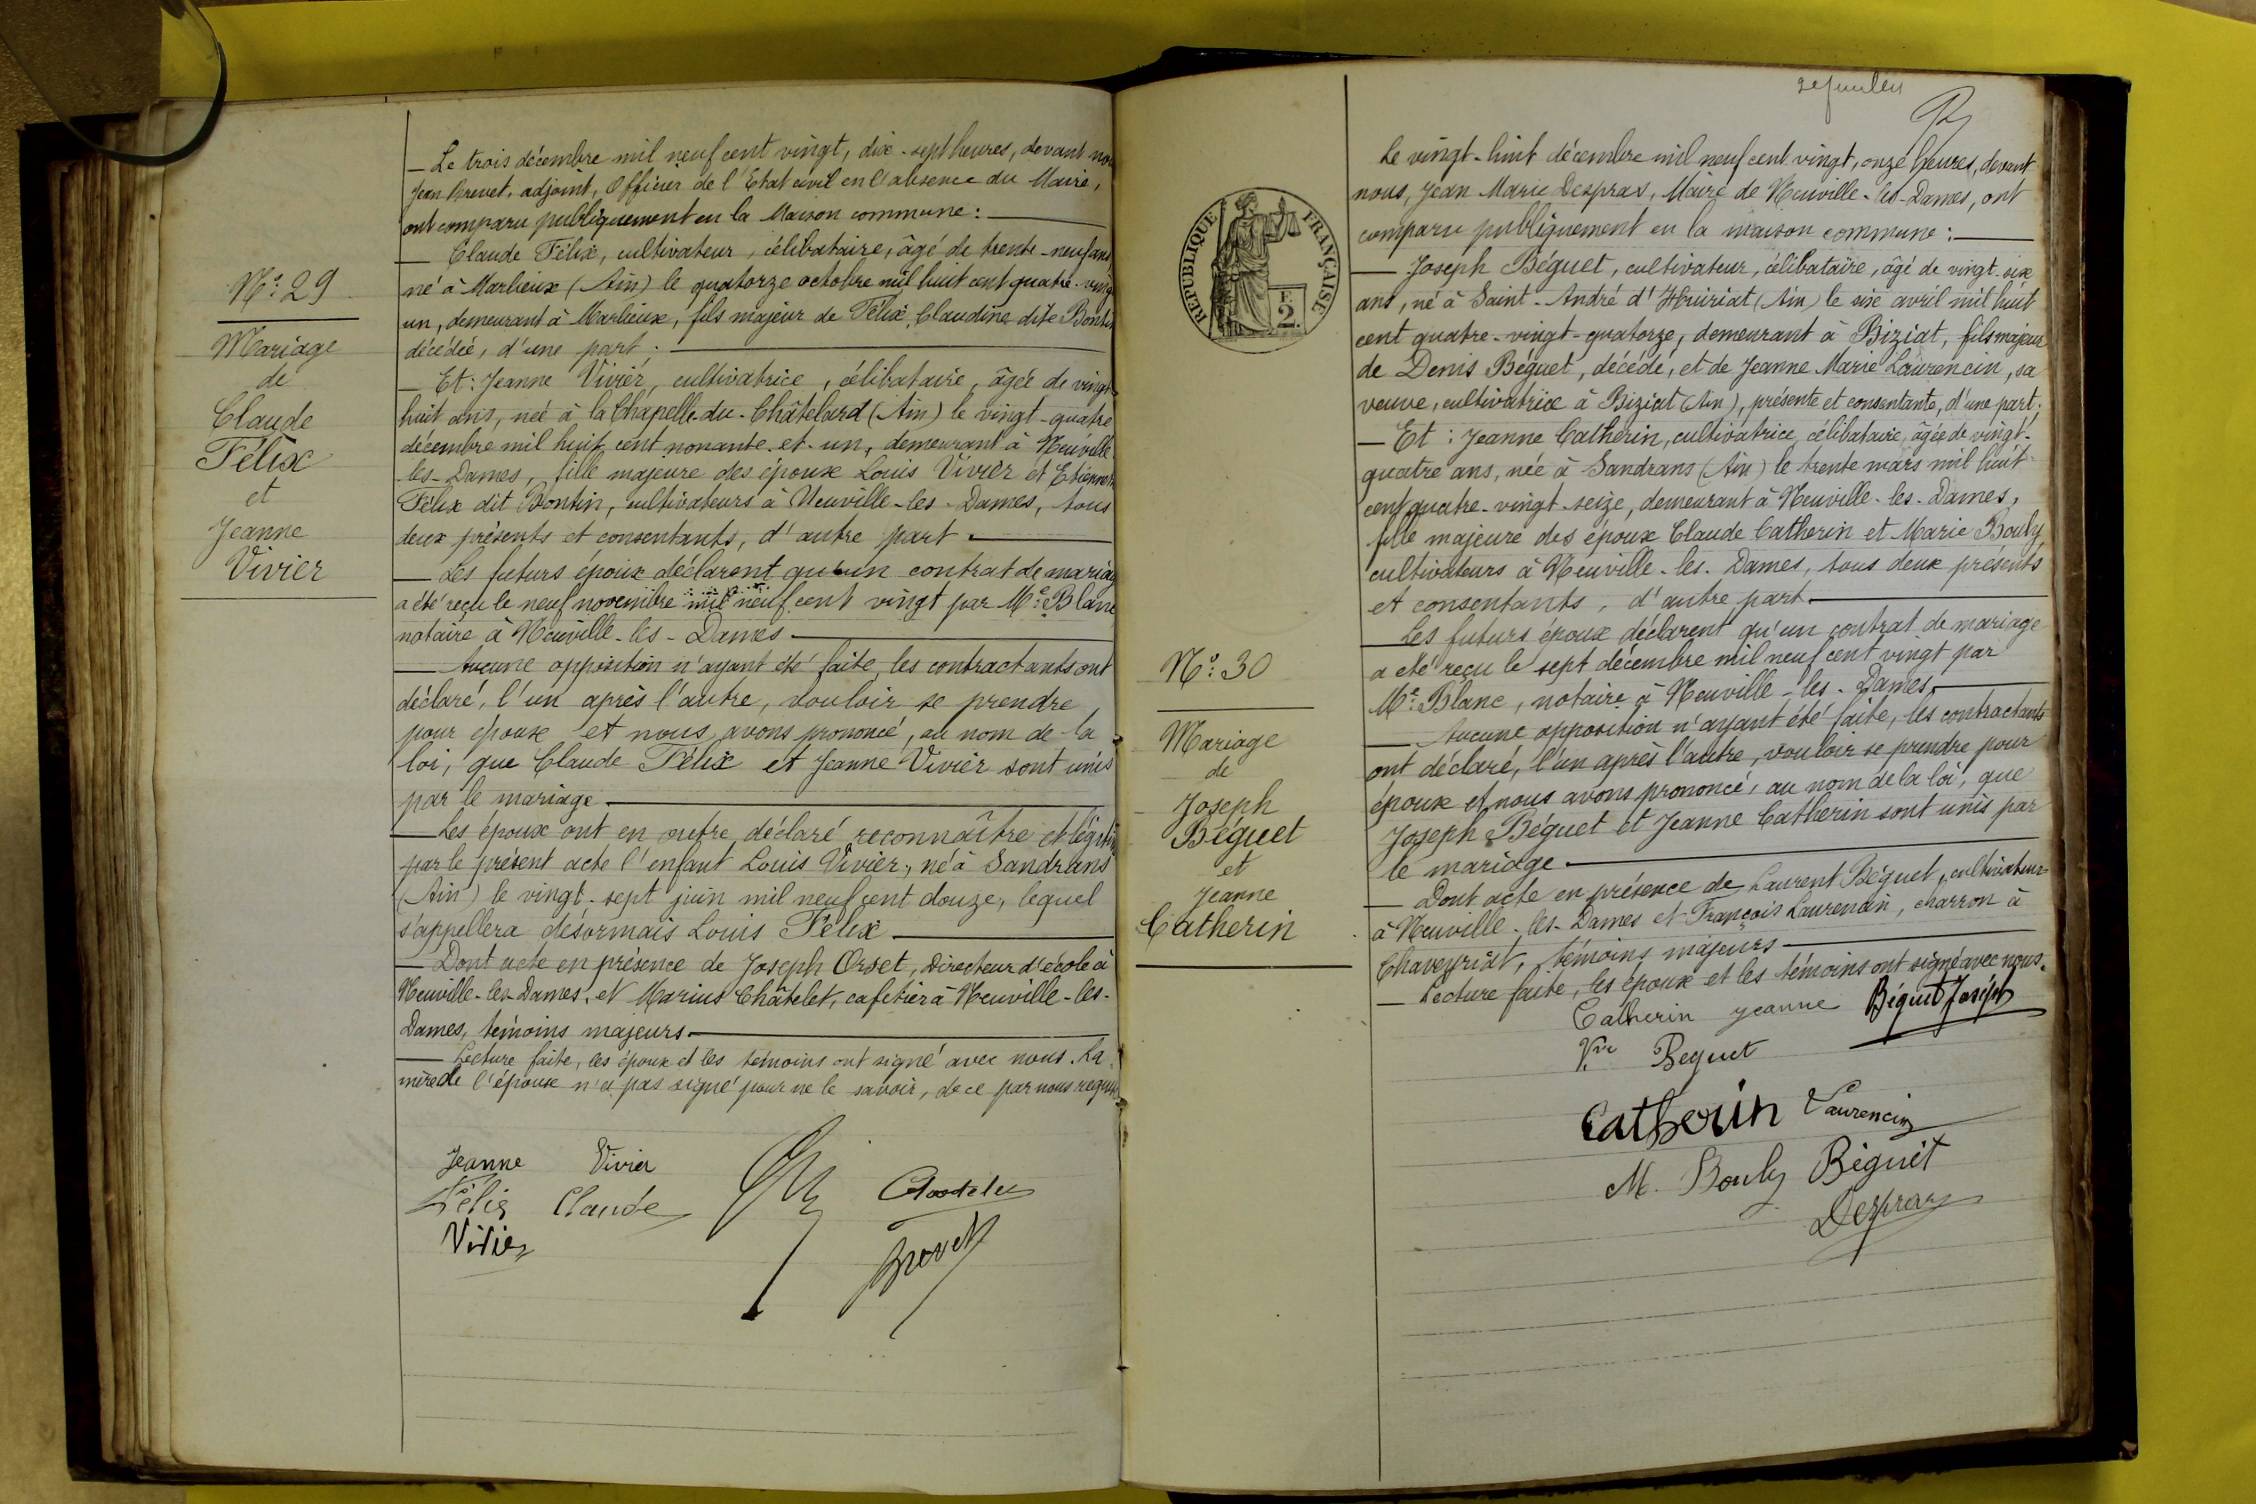 N° 29
Mariage
de
Claude
Félix
et
Jeanne
Vivier
— Le trois décembre mil neuf cent vingt, dix-sept heures, devant nou
Jean Brevet, adjoint, Officier de l'Etat civil en l'absence du Maire,
ont comparu publiquement en la Maison commune :
— Claude Félix, cultivateur, célibataire, âgé de trente-neuf ans
né à Marlieux (Ain) le quatorze octobre mil huit cent quatre-vingt
un, demeurant à Marlieux, fils majeur de Félix, Claudine dite Bontin
décédée, d'une part;
— Et : Jeanne Vivier, cultivatrice, célibataire, âgée de vingt-
huit ans, née à la Chapelle-du-Châtelard (Ain) le vingt-quatre
décembre mil huit cent nonante-et-un, demeurant à Neuville
-les-Dames, fille majeure des époux Louis Vivier et Etiennette
Félix dit Bontin, cultivateurs à Neuville-les-Dames, tous
deux présents et consentants, d'autre part.
— Les futurs époux déclarent qu'un contrat de mariage
a été reçu le neuf novembre mil neuf cent vingt par Me Blanc
notaire à Neuville-les-Dames
— Aucune opposition n'ayant été faite, les contractants ont
déclaré, l'un après l'autre, vouloir se prendre
pour époux et nous avons prononcé, au nom de la
loi, que Claude Félix et Jeanne Vivier sont unis
par le mariage
— Les époux ont en outre déclaré reconnaître et légitim
par le présent acte l'enfant Louis Vivier, né à Sandrans
(Ain) le vingt-sept juin mil neuf cent douze, lequel
s'appellera désormais Louis Félix
— Dont acte en présence de Joseph Orset, Directeur d'école à
Neuville-les-Dames, et Marius Châtelet, cafetier à Neuville-les-
Dames, témoins majeurs
— Lecture faite, les époux et les témoins ont signé avec nous. La
mère de l'épouse n'a pas signé pour ne le savoir, de ce par nous requise
Jeanne Vivier
Félix Claude
Vivier
Chatelet
Brevet
REPUBLIQUE FRANÇAISE
2
N° 30
Mariage
de
Joseph
Béguet
et
Jeanne
Catherin
Le vingt-huit décembre mil neuf cent vingt, onze heures, devant
nous, Jean Marie Despras, Maire de Neuville-les-Dames, ont
comparu publiquement en la maison commune :
— Joseph Béguet, cultivateur, célibataire, âgé de vingt-six
ans, né à Saint-André d'Huiriat (Ain) le six avril mil huit
cent quatre-vingt-quatorze, demeurant à Biziat, fils majeur
de Denis Béguet, décédé, et de Jeanne Marie Laurencin, sa
veuve, cultivatrice à Biziat (Ain), présente et consentante, d'une part;
— Et : Jeanne Catherin, cultivatrice, célibataire, âgée de vingt-
quatre ans, née à Sandrans (Ain) le trente mars mil huit
cent quatre-vingt-seize, demeurant à Neuville-les-Dames,
fille majeure des époux Claude Catherin et Marie Bouly
cultivateurs à Neuville-les-Dames, tous deux présents
et consentants, d'autre part
— Les futurs époux déclarent qu'un contrat de mariage
a été reçu le sept décembre mil neuf cent vingt par
Me Blanc, notaire à Neuville-les-Dames
— Aucune opposition n'ayant été faite, les contractants
ont déclaré, l'un après l'autre, vouloir se prendre pour
époux et nous avons prononcé, au nom de la loi, que
Joseph Béguet et Jeanne Catherin sont unis par
le mariage
— Dont acte en présence de Laurent Béguet, cultivateur
à Neuville-les-Dames et François Laurencin, charron à
Chaveyriat, témoins majeurs
— Lecture faite, les époux et les témoins ont signé avec nous.
Catherin Jeanne Béguet Joseph
Vve Beguet
Catherin Laurencin
M. Bouly Béguet
Despras